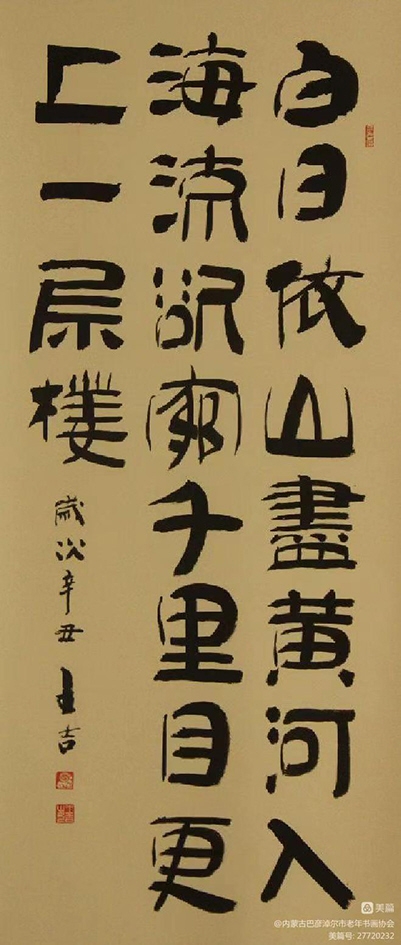 白日依山盡黄河入
海流欲窮千里目更
上一层樓
歲次辛丑王吉
美篇
@内蒙古巴彦淖尔市老年书画协会
美篇号: 27720232